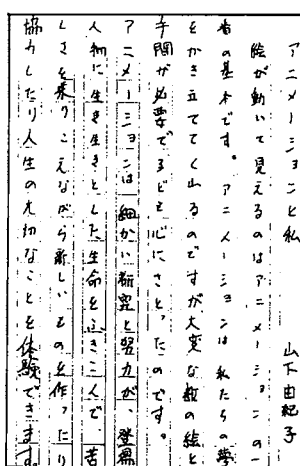 アニメーションと私　山下由紀子
絵が動いて見えるのはアニメーションの一
番の基本です。アニメーションは私たちの夢
をかき立ててくれるのですが大変な数の絵と
手間が必要で心にさとったのです。
アニメーションは細かい研究と努力が、登場
人物に生き生きとした生命を吹きこんで、苦
しさを乗りこえながら新しいものを作ったり
協力したり人生の大切なことを体験できます。